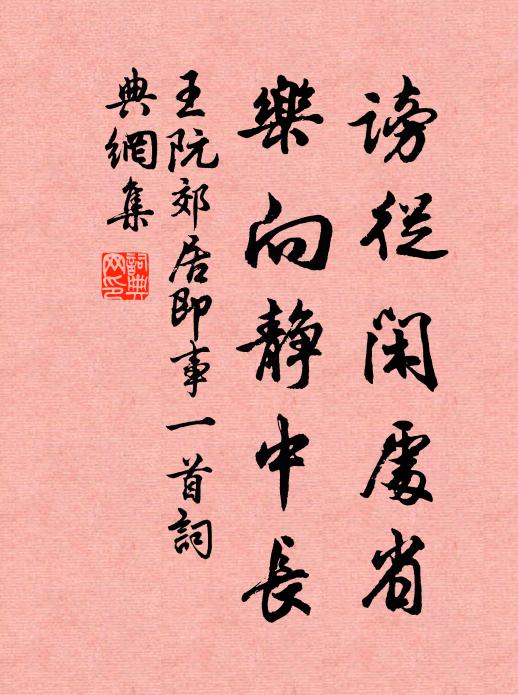 謗從閑處省
樂向靜中長
王阮郊居即事一首詞
典網集
詞典網印